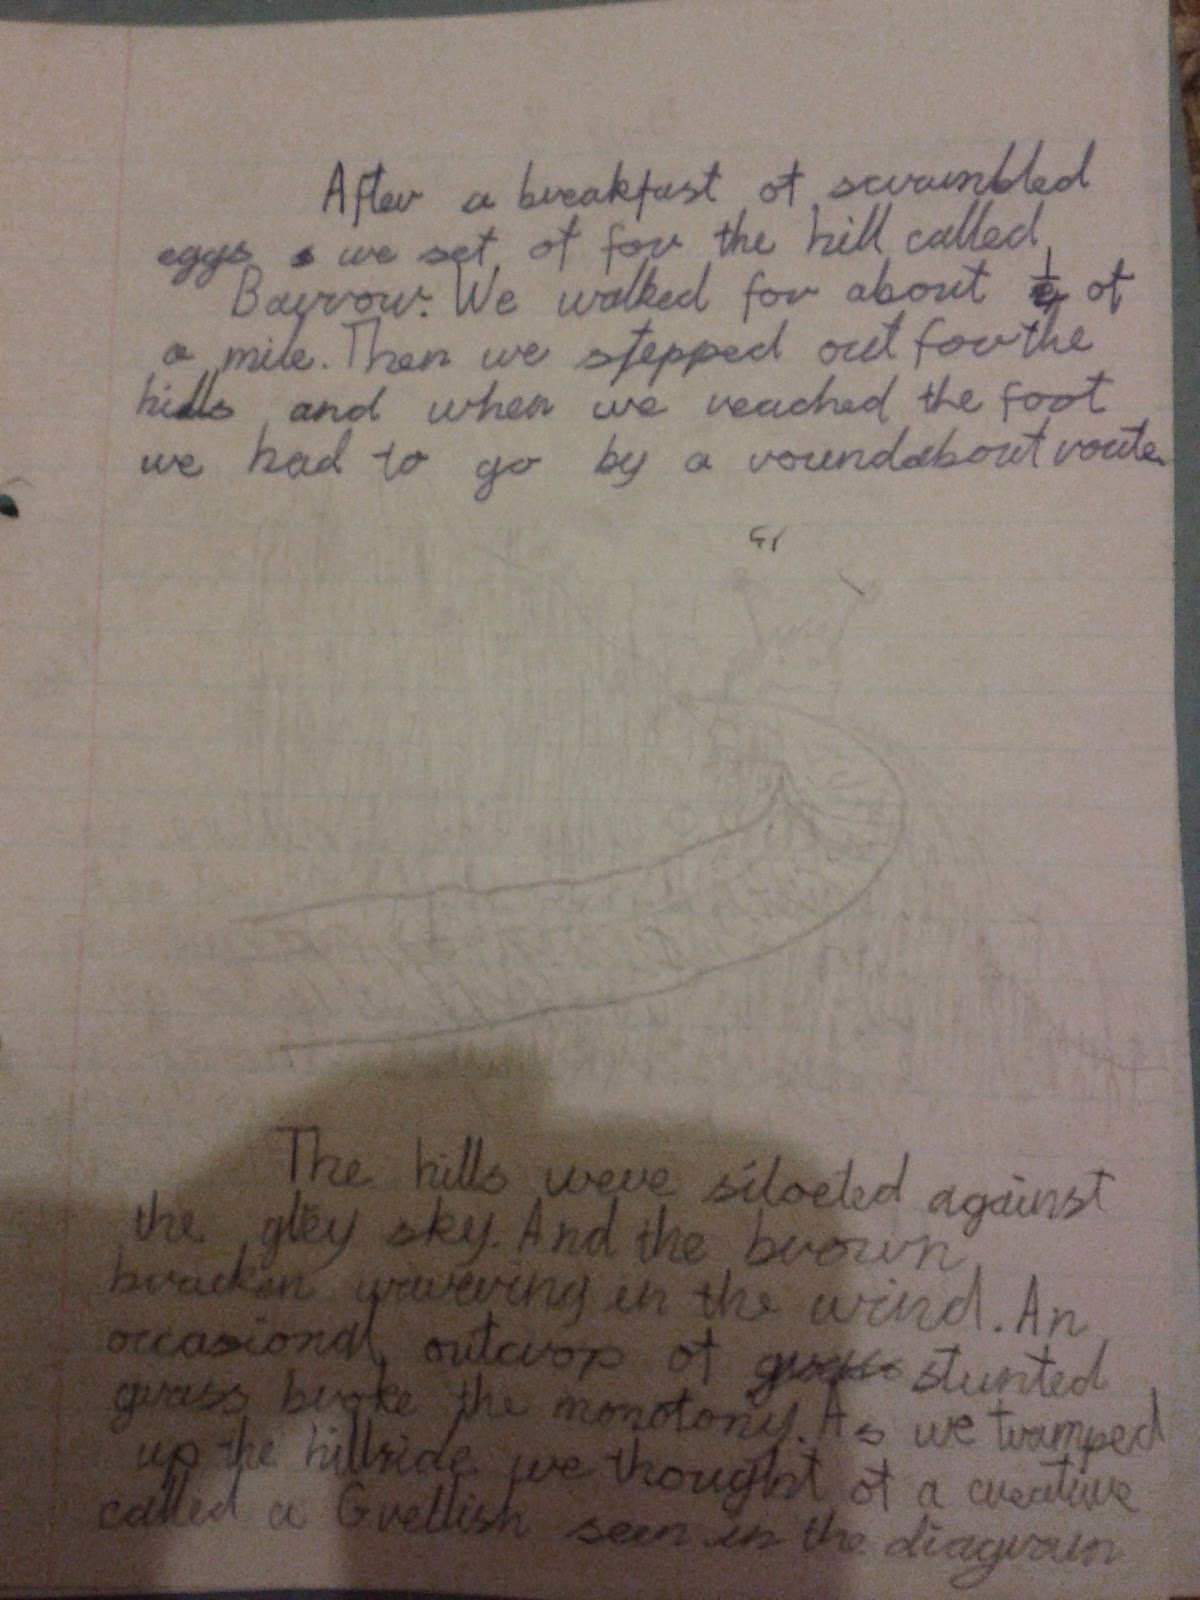 After a breakfast of scrambled
eggs we set of for the hill called
Barrow. We walked for about 1/4 of
a mile. Then we stepped out for the
hills and when we reached the foot
we had to go by a roundabout route.
The hills were siloeted against
the grey sky. And the brown
bracken wavering in the wind. An
occasional outcrop of stunted
grass broke the monotony. As we tramped
up the hillside we thought of a creature
called a Grellish seen in the diagram